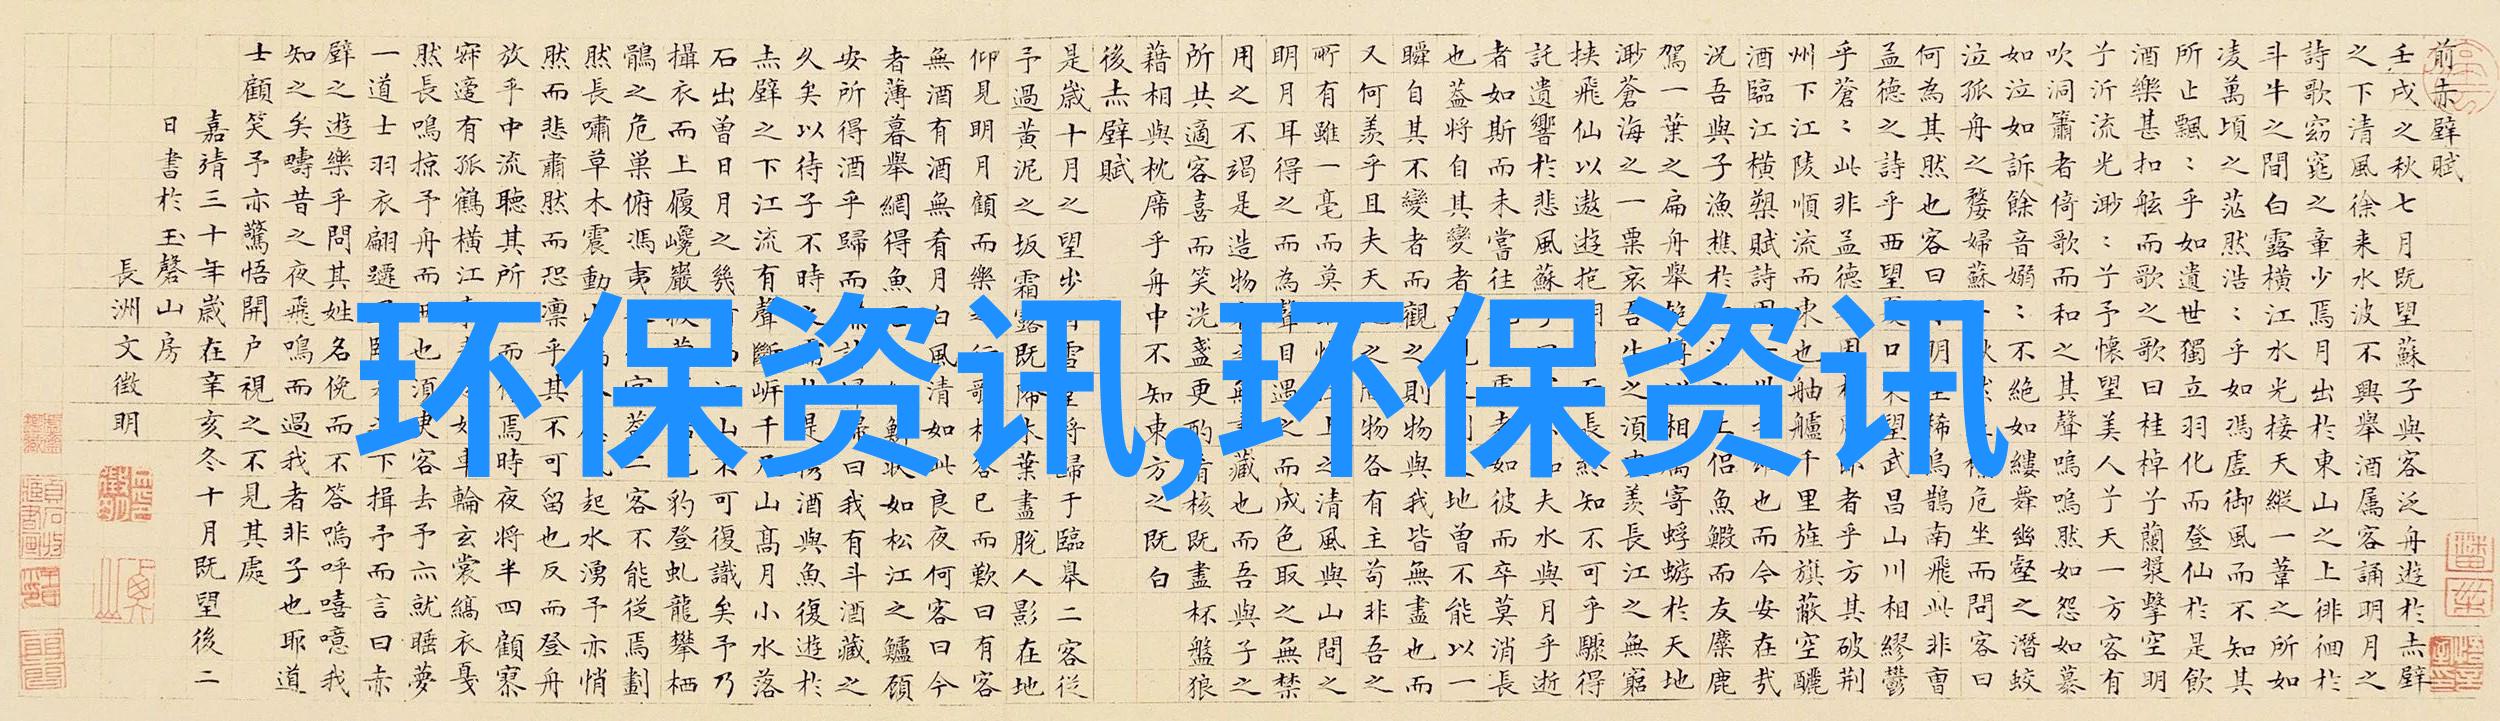 环保资讯,环保资讯
前赤壁賦
壬戌之秋七月既望蘇子與客泛舟遊於赤壁
之下清風徐来水波不興舉酒属客誦明月之
詩歌窈窕之章少焉月出於東山之上徘徊於
斗牛之間白露横江水光接天縱一葦之所如
凌萬頃之茫然浩〻乎如馮虚御風而不知其
所止飄〻乎如遺世獨立羽化而登仙於是飲
酒樂甚扣舷而歌之歌曰桂棹兮蘭槳擊空明
兮泝流光渺〻兮予懷望美人兮天一方客有
吹洞簫者倚歌而和之其聲嗚嗚然如怨如慕
如泣如訴餘音嫋〻不絕如縷舞幽壑之潛蛟
泣孤舟之嫠婦蘇危坐而問客曰
何為其然也客曰明稀烏鵲南飛此非曹
孟德之詩乎西望口望武昌山川相繆鬱
乎蒼〻此非孟德者乎方其破荆
州下江陵順流而東也舳艫千里旌旗蔽空釃
酒臨江横槊賦詩也而今安在哉
況吾與子漁樵於侶魚鰕而友麋鹿
駕一葉之扁舟舉相寄蜉蝣於天地
渺蒼海之一粟哀吾之須羡長江之無窮
挾飛仙以遨遊抱長知不可乎驟得
託遺響於悲風蘇夫水與月乎逝
者如斯而未嘗往如彼而卒莫消長
也蓋將自其變者地曾不能以一
瞬自其不變者而觀之則物與我皆無盡也而
又何羡乎且夫天之物各有主苟非吾之
所有雖一毫而莫上之清風與山間之
明月耳得之而為聲目遇之而成色取之無禁
用之不竭是造物藏也而吾與子之
所共適客喜而笑洗盞更酌肴核既盡杯盤狼
藉相與枕席乎舟中不知東方之既白
後赤壁賦
是歲十月之望步将歸于臨皋二客從
予過黄泥之坂霜露既降木葉盡脫人影在地
仰見明月顧而樂歌相已而歎曰有客
無酒有酒無肴月白風清如此良夜何客曰今
者薄暮舉網得魚如松江之鱸顧
安所得酒乎歸而婦曰我有斗酒藏之
久矣以待子不時是酒與魚復遊於
赤壁之下江流有聲斷岸千山高月小水落
石出曾日月之幾山可復識矣予乃
攝衣而上履巉巖豹登虬龍攀栖
鶻之危巢俯馮夷二客不能從焉劃
然長嘯草木震動起水湧予亦悄
然而悲肅然而恐凛乎其不可留也反而登舟
放乎中流聽其所而焉時夜將半四顧寂
寥適有孤鶴横江如車輪玄裳縞衣戛
然長鳴掠予舟而也須臾客去予亦就睡夢
一道士羽衣翩躚下揖予而言曰赤
壁之遊樂乎問其姓名俛而不答嗚呼嘻噫我
知之矣疇昔之夜飛鳴而過我者非子也耶道
士顧笑予亦驚悟開户視之不見其處
嘉靖三十年歲在辛亥冬十月既望後二
日書於玉磬山房
長洲文徵明